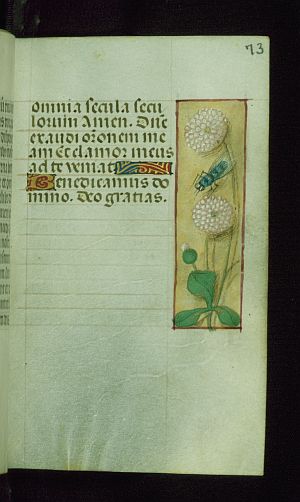 73
omnia secula secu
lorum Amen. Dne
exaudi oronem me
am Et clamor meus
ad te veniat
Benedicamus do
mino. Deo gratias.